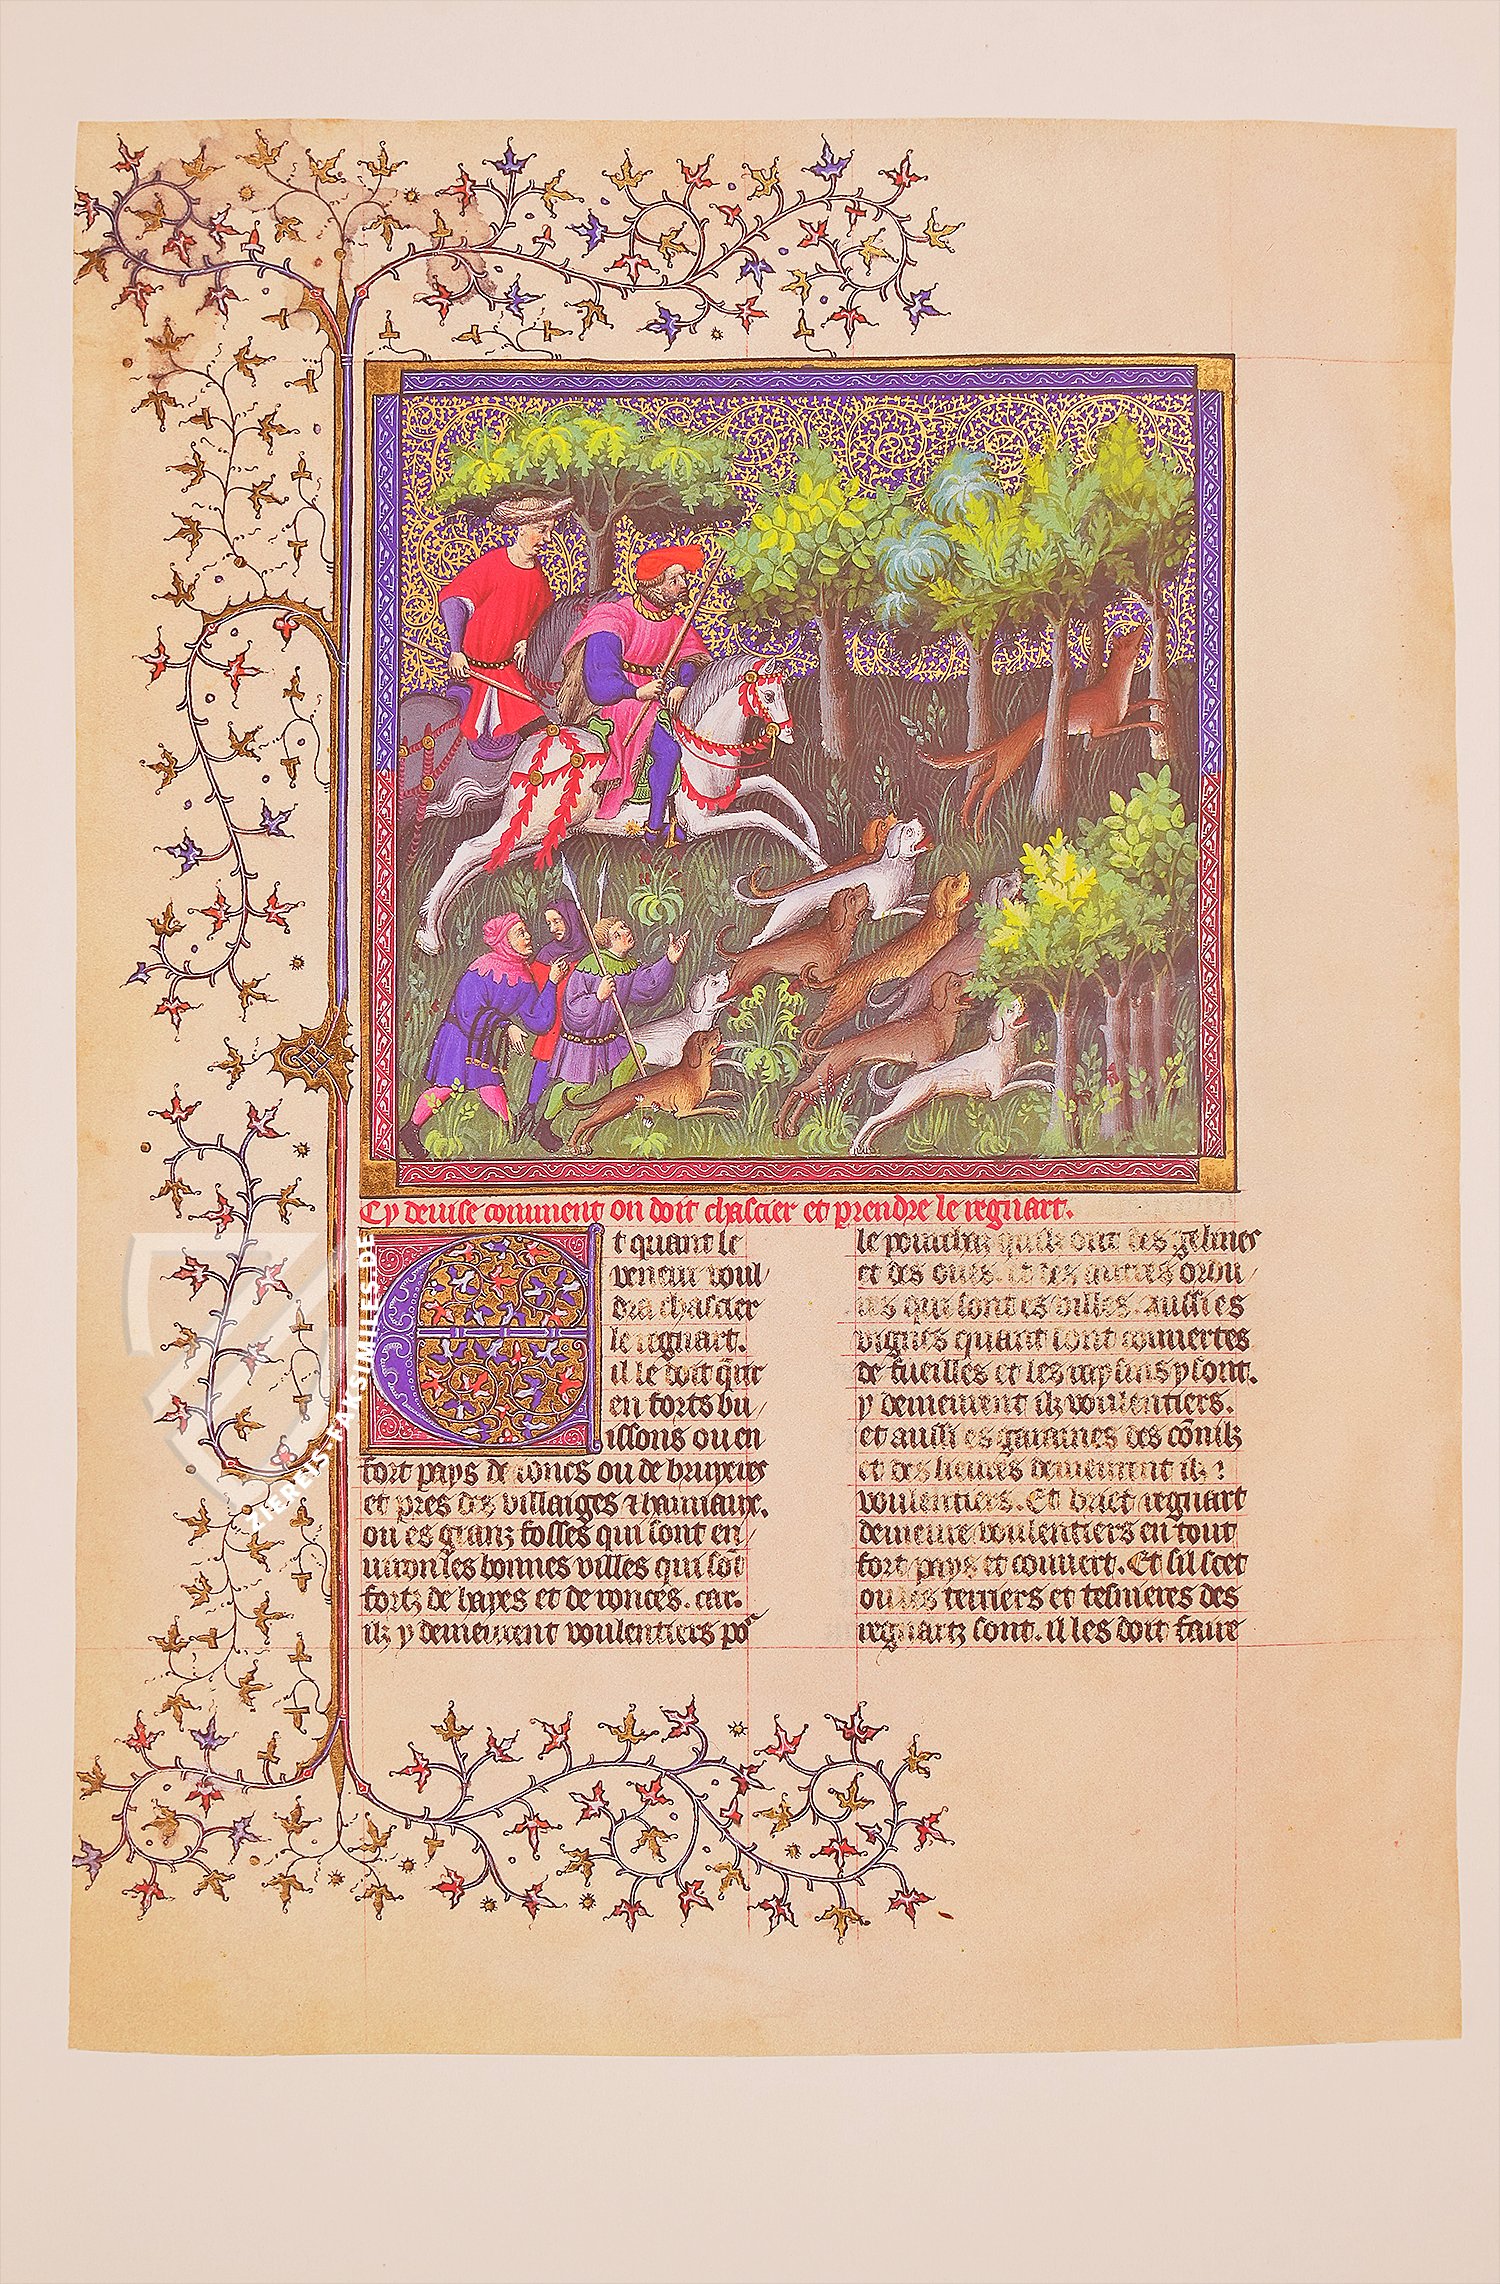 Cy deuise comment on doit chascier et prendre le regnart.
Et quant le
veneur voul/
dra chascier
le regnart.
il le doit q̃rir
en forts bu/
issons ou en
fort pays de ronces ou de bruyeres
et pres des villaiges et hamiaux.
ou es granz fosses qui sont en/
uiron les bonnes villes qui sõt
fortz de hayes et de ronces. car.
ilz y demeurent voulentiers po
le pourchaz quilz ont des gelines
et des oues. et des autres
qui sont es villes. Aussi es
vignes quant sont couuertes
de fueilles et les raysins y sont.
y demeurent ilz voulentiers.
et aussi es garannes des cõnilz
et des lieures demeurent ilz
voulentiers. Et brief regnart
demeure voulentiers en tout
fort pays et couuert. Et sil scet
ou les terriers et tesnieres des
regnartz sont. il les doit faire
ZIEREIS-FAKSIMILES.DE